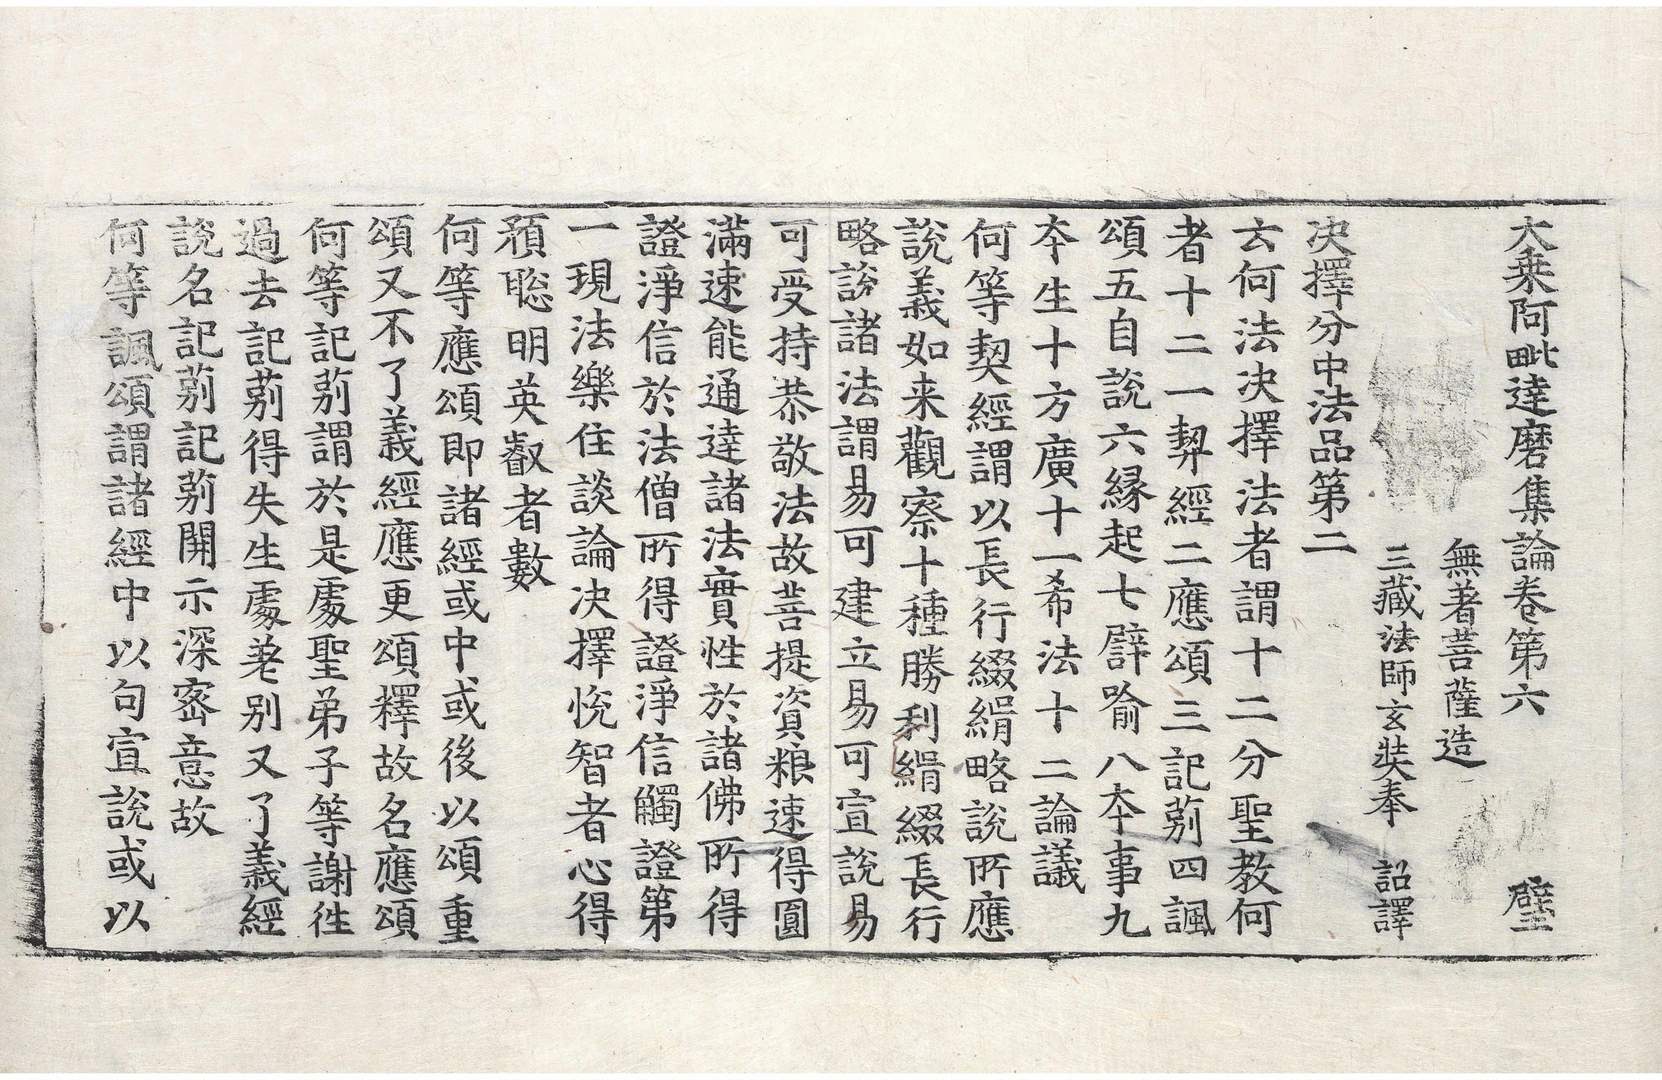 大乗阿毗達磨集論卷第六 璧
無著菩薩造
三藏法師玄奘奉 詔譯
决擇分中法品第二
云何法决擇法者謂十二分聖教何
者十二一契經二應頌三記莂四諷
頌五自說六縁起七譬喻八本事九
本生十方廣十一希法十二論議
何等契經謂以長行綴緝略說所應
說義如来觀察十種勝利緝綴長行
略說諸法謂易可建立易可宣說易
可受持恭敬法故菩提資粮速得圓
滿速能通達諸法實性於諸佛所得
證淨信於法僧所得證淨信觸證第
一現法樂住談論决擇悅智者心得
預聡明英叡者數
何等應頌即諸經或中或後以頌重
頌又不了義經應更頌釋故名應頌
何等記莂謂於是處聖弟子等謝徃
過去記莂得失生處差别又了義經
說名記莂記莂開示深密意故
何等諷頌謂諸經中以句宣說或以